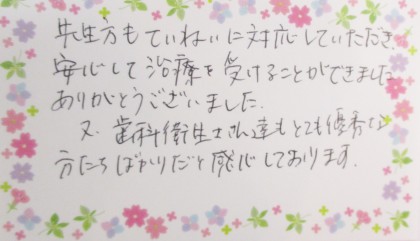 先生方もていねいに対応していただき、
安心して治療を受けることができました
ありがとうございました.
又、歯科衛生士さん達もとても優秀な
方たちばかりだと感心しております.